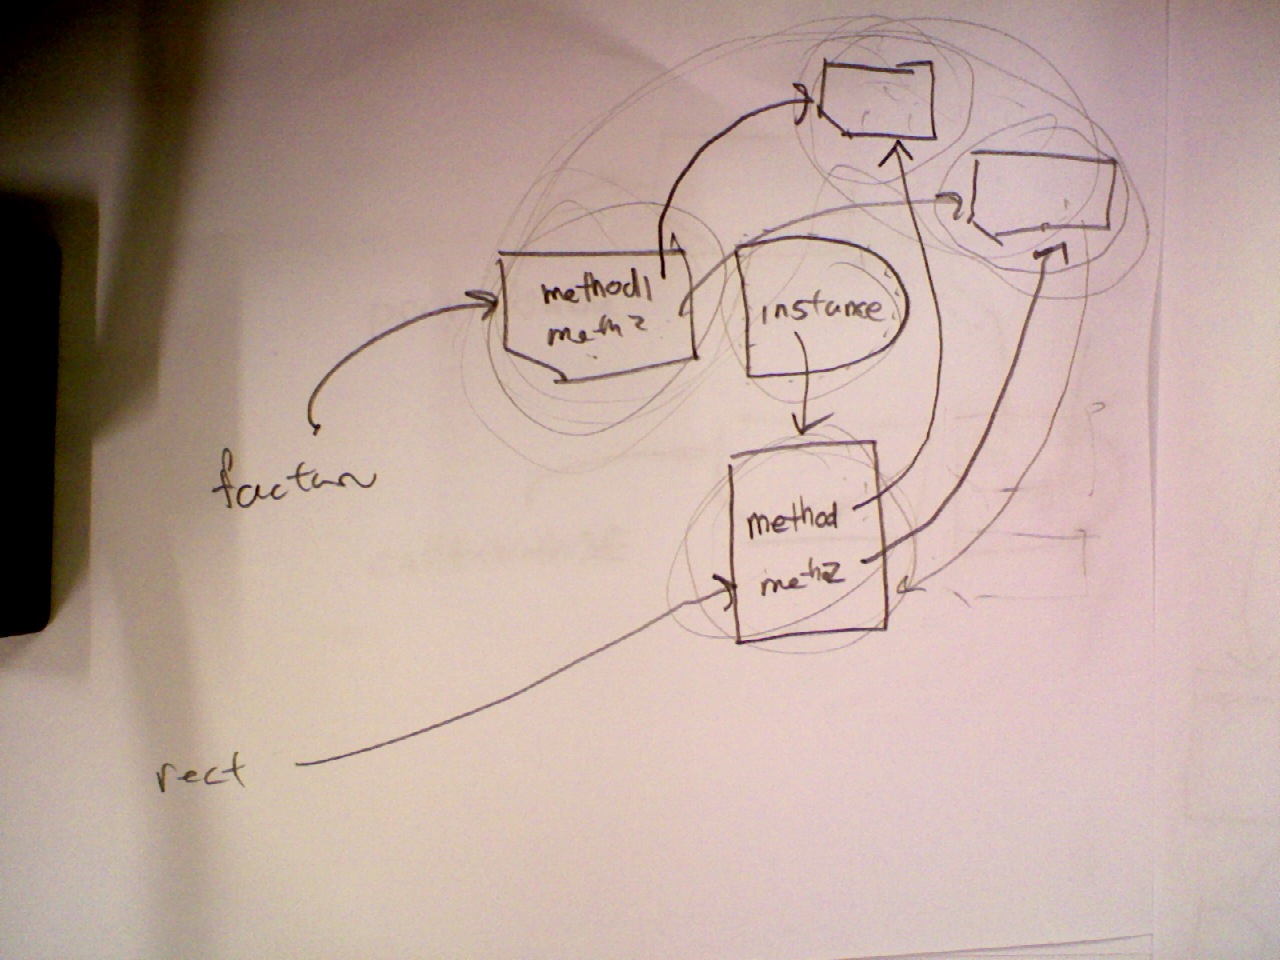 method1
meth2
instance
method
meth2
rect